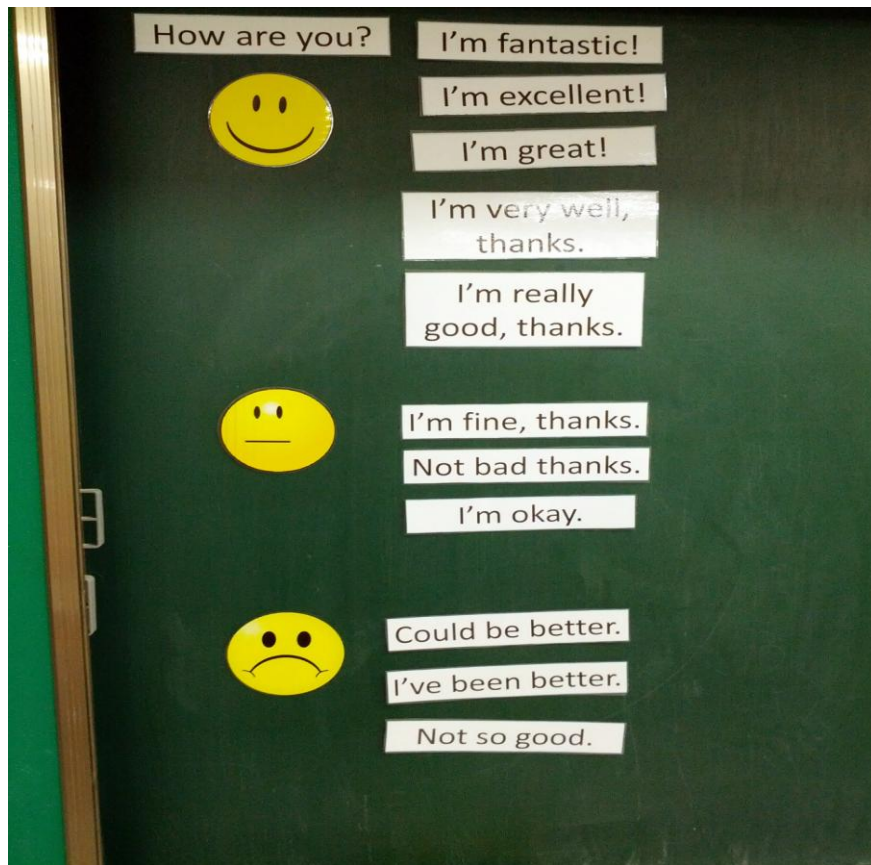 How are you?
I'm fantastic!
I'm excellent!
I'm great!
I'm very well,
thanks.
I'm really
good, thanks.
I'm fine, thanks.
Not bad thanks.
I'm okay.
Could be better.
I've been better.
Not so good.